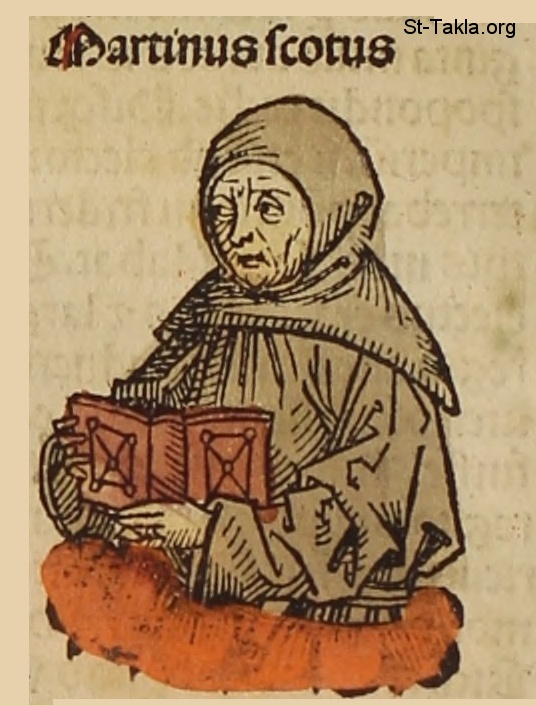 St-Takla.org
Martinus scotus